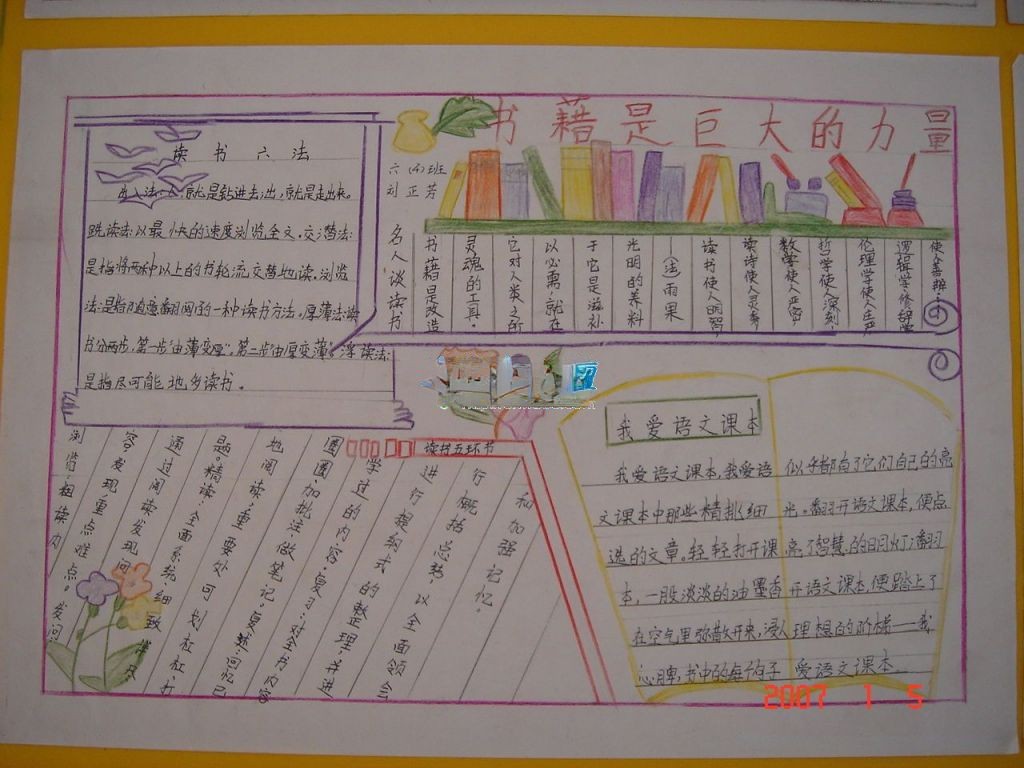 书藉是巨大的力量
六(4)班
刘正芳
读书六法
出入法:入,就是钻进去;出,就是走出来。
跳读法:以最快的速度浏览全文。交潜法:
是指将两种以上的书轮流交替地读。浏览
法:是指随意翻阅的一种读书方法。厚薄法:读
书分两步,第一步"由薄变厚",第二步"由厚变薄"。浮读法:
是指尽可能地多读书。
名人谈读书
书藉是改造
灵魂的工具。
它对人类之所
以必需,就在
于它是滋补
光明的养料
—(法)雨果
读书使人明智,
读诗使人灵秀,
数学使人严密,
哲学使人深刻,
伦理学使人庄严,
逻辑学修辞学
使人善辩。
读书五环节
浏览:粗读内
容,发现重点难点。发问:
通过阅读发现问
题。精读:全面系统细致
地阅读,重要处可划杠杠,打
圈圈,加批注,做笔记。复述:回忆已
学过的内容。复习:对全书内容
进行提纲式的整理,并进
行概括总结,以全面领会
和加强记忆。
我爱语文课本
我爱语文课本,我爱语
文课本中那些精挑细
选的文章。轻轻打开课
本,一股淡淡的油墨香
在空气里弥散开来,浸入
心脾,书中的每个句子
似乎都有了它们自己的亮
光。翻开语文课本,便点
亮了智慧的明灯;翻
开语文课本,便踏上了
理想的阶梯——我
爱语文课本…
2007 1 5